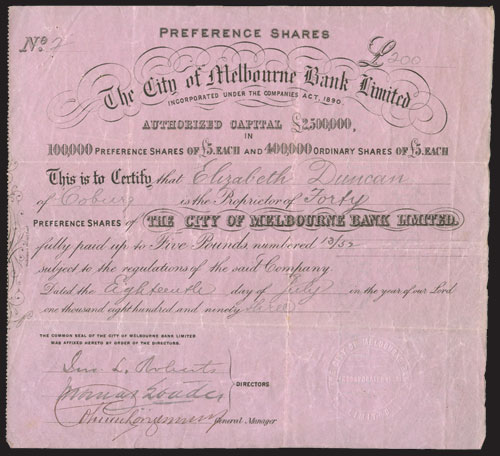 PREFERENCE SHARES
No 2
£200
The City of Melbourne Bank Limited
INCORPORATED UNDER THE COMPANIES ACT, 1890.
AUTHORIZED CAPITAL £2,500,000,
IN
100,000 PREFERENCE SHARES OF £5. EACH AND 400,000 ORDINARY SHARES OF £5. EACH
This is to Certify that Elizabeth Duncan
of Coburg is the Proprietor of Forty
PREFERENCE SHARES OF THE CITY OF MELBOURNE BANK LIMITED.
fully paid up to Five Pounds numbered 13/52
subject to the regulations of the said Company
Dated the Eighteenth day of July in the year of our Lord
one thousand eight hundred and ninety
THE COMMON SEAL OF THE CITY OF MELBOURNE BANK LIMITED
WAS AFFIXED HERETO BY ORDER OF THE DIRECTORS.
Jno L. Roberts
DIRECTORS
General Manager